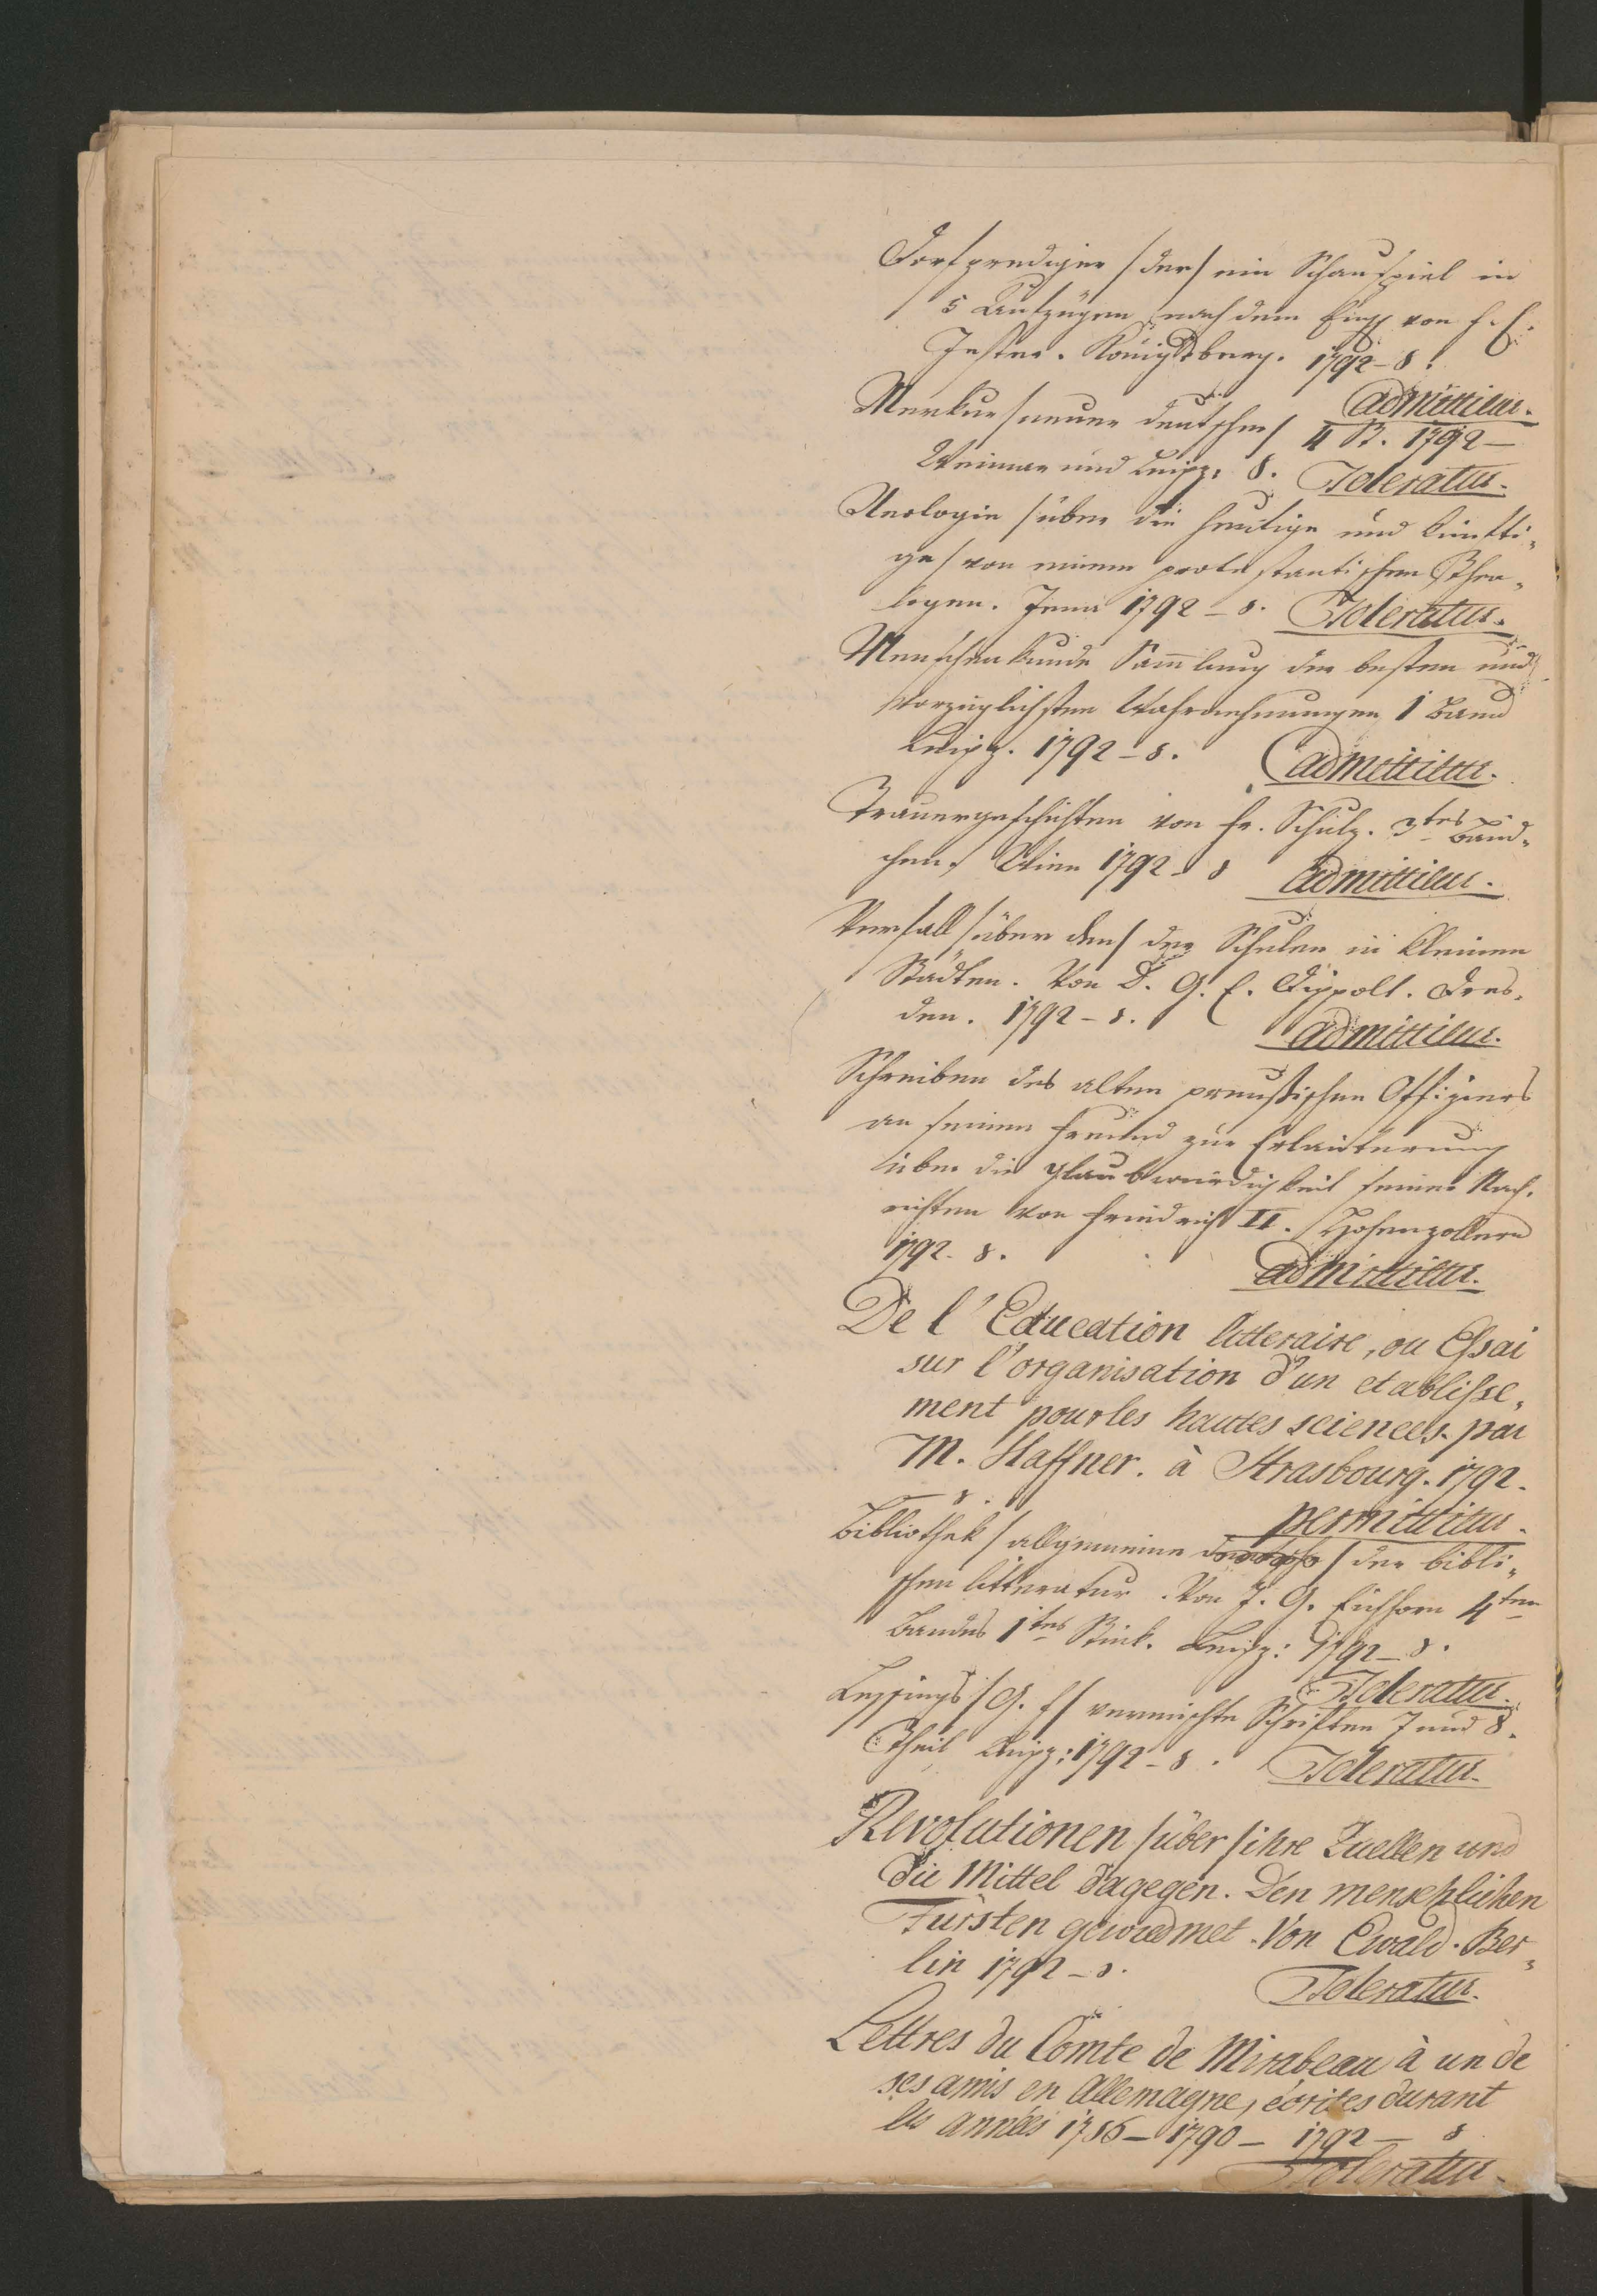 Dorfprediger /der/ ein Schauspiel in
5 Aufzügen nach dem Engl von F. E.
Jester. Königsberg. 1792 – 8.
admittitur.
Merkur /neuer deutscher/ 4 St. 1792 –
Weimar und Leipz. 8. Toleratur.
Neologie /über die heutige und künfti-
ge/ von einem protestantischen Theo-
logen. Jena 1792 – 8. Toleratur.
Menschenkunde Sammlung der besten und
vorzüglichsten Wahrnehmungen 1 Band
Leipz. 1792 – 8. admittitur.
Trauergeschichten von Fr. Schulz. 3tes Bänd-
chen. Wien 1792 – 8 admittitur.
Verfall /über den/ der Schulen in kleinen
Städten. Von D. G. E. Dippolt. Dres-
den. 1792 – 8. admittitur.
Schreiben des alten preußischen Offiziers
an seinen Freund zur Erläuterung
über die Glaubwürdigkeit seiner Nach-
richten von Friedrich II. Hohenzollern
1792. 8. admittitur.
De l'Education litteraire, ou Essai
sur l'organisation d'un etablisse-
ment pour les hautes sciences. par
M. Haffner. à Strasbourg. 1792.
8. permittitur.
Bibliothek /allgemeine / der bibli-
schen Litteratur. Von J. G. Eichhorn 4ten
Bandes 1tes Stück. Leipz: 1792 – 8.
Toleratur.
Lessings /G. E/ vermischte Schriften 7 und 8.
Theil, Leipz: 1792 – 8. Toleratur.
Revolutionen /über/ ihre Quellen und
die Mittel dagegen. Den menschlichen
Fürsten gewiedmet. Von Ewald. Ber-
lin 1792 – 8. Toleratur.
Lettres du Comte de Mirabeau à un de
ses amis en Allemagne, écrites durant
les années 1786 – 1790 – 1792 – 8
Toleratur.